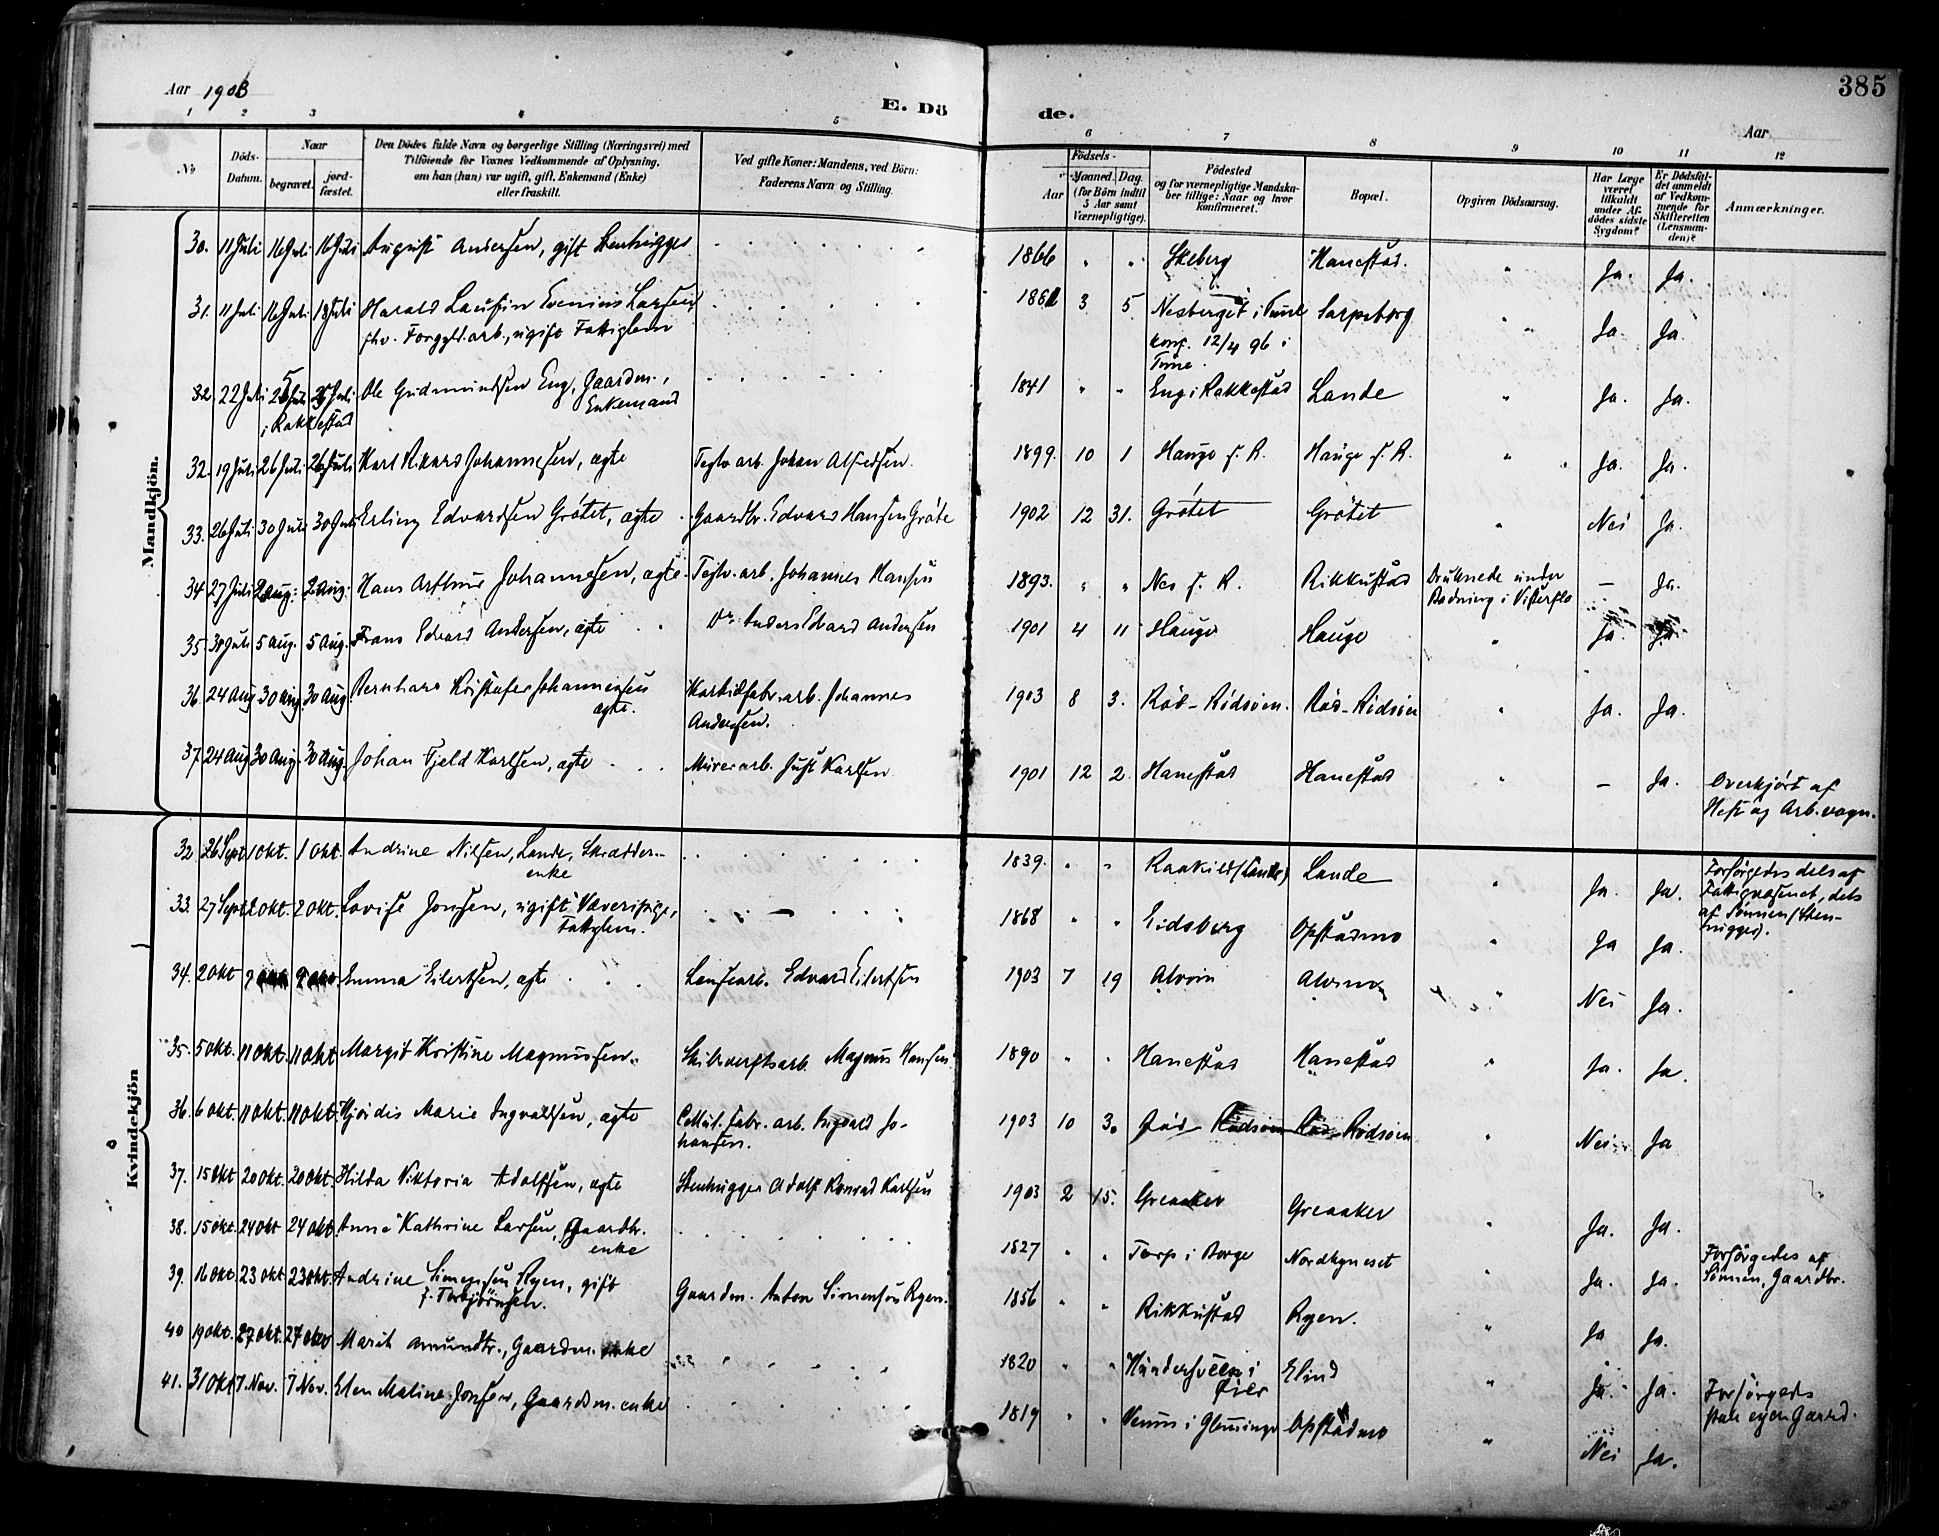 385
Aar 1903
E. Döde.
Aar
1 2 3 4 5 6 7 8 9 10 11 12
No
Döds-Datum.
Naar
begravet.
jord-fæstet.
Den Dödes fulde Navn og borgerlige Stilling (Næringsvei) med
Tilföiende for Voxnes Vedkommende af Oplysning,
om han (hun) var ugift, gift, Enkemand (Enke)
eller fraskilt.
Ved gifte Koner: Mandens, ved Börn:
Faderens Navn og Stilling.
Födsels-
Aar Maaned. Dag.
(for Börn indtil
5 Aar samt
Værnepligtige).
Födested
og for værnepligtige Mandska-
ber tillige: Naar og hvor
konfirmeret.
Bopæl.
Opgiven Dödsaarsag.
Har Læge
været
tilkaldt
under Af-
dödes sidste
Sygdom?
Er Dödsfal-
det anmeldt
af Vedkom-
mende for
Skifteretten
(Lensman-
den)?
Anmærkninger.
Mandkjön.
30. 11 Juli 16 Juli 16 Juli August Andersen, gift Stenhugger 1866 " " Skeberg Hanestad. " Ja. Ja.
31. 11 Juli 16 Juli 18 Juli Harald Laurin Evenius Larsen 3 5. Nesberget i Tune Sarpsborg " Ja. Ja.
fhv. Forgyld.arb., ugift Fattiglem konf. 12/4 96 i
Tune.
32 22 Juli Juli Juli Ole Gudmundsen Eng, Gaardm., 1841 " " Eng i Rakkestad Lande " Ja. Ja.
i Rakkestad Enkemand
32. 19 Juli 26 Juli 26 Juli Karl Rikard Johannesen, ægte Teglv.arb. Johan Alfredsen. 1899. 10 1 Hauge f. R. Hauge f. R. " Ja. Ja.
33. 26 Juli 30 Juli 30 Juli Erling Edvardsen Grötet, ægte Gaardbr. Edvard Hansen Gröte 1902 12 31. Grötet Grötet " Nei Ja.
34 27 Juli 2 aug. 2 aug. Hans Arthur Johannesen, ægte Teglv.arb. Johannes Hansen 1893. " " Nes f. R. Rikkustad Druknede under – Ja.
Badning i Visterflo
35. Juli 5 aug. 5 aug. Frans Edvard Andersen, ægte Do Anders Edvard Andersen 1901 4 11 Hauge Hauge " Ja Ja
36. 24 aug 30 aug. 30 aug Bernhard Kristofer Johannessen Karbidfabr.arb. Johannes 1903 8 3. Röd-Rödsöen. Röd-Rödsöen " Ja. Ja.
ægte. Andersen.
37. 24 aug 30 aug. 30 aug. Johan Fjeld Karlsen, ægte Murerarb. Just Karlsen 1901 12 2 Hanestad Hanestad " – Ja. Overkjört af
Hest og Arb.vogn.
Kvindekjön
32 26 Sept 1 Okt. 1 Okt. Andrine Nilsen, Lande, Skrædder- 1839. " " Lande " Ja. Ja. Forsörgedes dels af
enke Fattigvæsenet, dels
af Sönnen (Sten-
hugger).
33. 27 Sept 2 Okt. 2 Okt. Lovise Jonsen, ugift Væverpige, 1868 " " Eidsberg Opstadmo " Ja Ja.
Fattiglem.
34. 2 Okt Emma Eilertsen, ægte Lensearb. Edvard Eilertsen 1903 7 19 Alvim Alvim " Nei Ja.
35. 5 Okt. 11 Okt. 11 Okt Margit Kristine Magnussen. Skibsverftsarb. Magnus Hansen 1890 " " Hanestad Hanestad " Ja. Ja.
36. 6 Okt. 11 Okt. 11 Okt. Hjördis Marie Ingvaldsen, ægte Cellul. fabr. arb. Ingvald Jo- 1903 10 3. Röd Rödsöen Röd Rödsöen " Nei Ja
hansen.
37. 15 Okt 20 Okt. 20 Okt. Hilda Viktoria Adolfsen, ægte Stenhugger Adolf Konrad Karlsen 1903 2 15. Greaaker Greaaker " Ja. Ja.
38. 15 Okt. 24 Okt 24 Okt Anne Kathrine Larsen, Gaardbr. 1827 " " Torp i Borge Nordkyneset " Ja. Ja. Forsörgedes af
enke Sönnen, Gaardbr.
39. 16 Okt 23 Okt 23 Okt Andrine Simensen Ryen, gift Gaardm. Anton Simensen Ryen. 1856 " " Rikkustad Ryen. " Ja Ja.
f. Torbjörnsen.
40 19 Okt. 27 Okt. 27 Okt Marit Amundtr., Gaardm. enke 1820 " " i Elind " Ja. Ja. Forsörgeds
Öier
41. 31 Okt 7 Nov. 7 Nov. Elen Maline Jonsen, Gaardm. enke 1819 " " Venus i Glemminge Opstadmo " Nei Ja. paa egen Gaard.